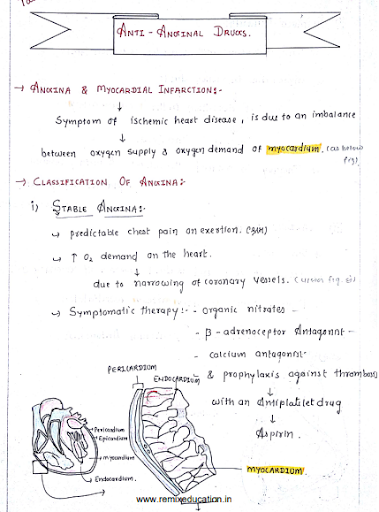 ANTI - ANGINAL DRUGS.
→ ANGINA & MYOCARDIAL INFARCTIONS:-
↓
Symptom of ischemic heart disease, is due to an imbalance
↓
between oxygen supply & oxygen demand of myocardium. (as below fig)
→ CLASSIFICATION OF ANGINA:-
i) STABLE ANGINA:-
↳ predictable chest pain on exertion.
↳ ↑ O₂ demand on the heart.
↓
due to narrowing of coronary vessels.
↳ Symptomatic therapy:- - organic nitrates -
- β - adrenoceptor Antagonist -
- calcium antagonist-
& prophylaxis against thrombosis
↓
with an Antiplatelet drug
↓
Aspirin.
PERICARDIUM
ENDOCARDIUM
Pericardium
Epicardium
myocardium
Endocardium.
MYOCARDIUM.
www.remixeducation.in